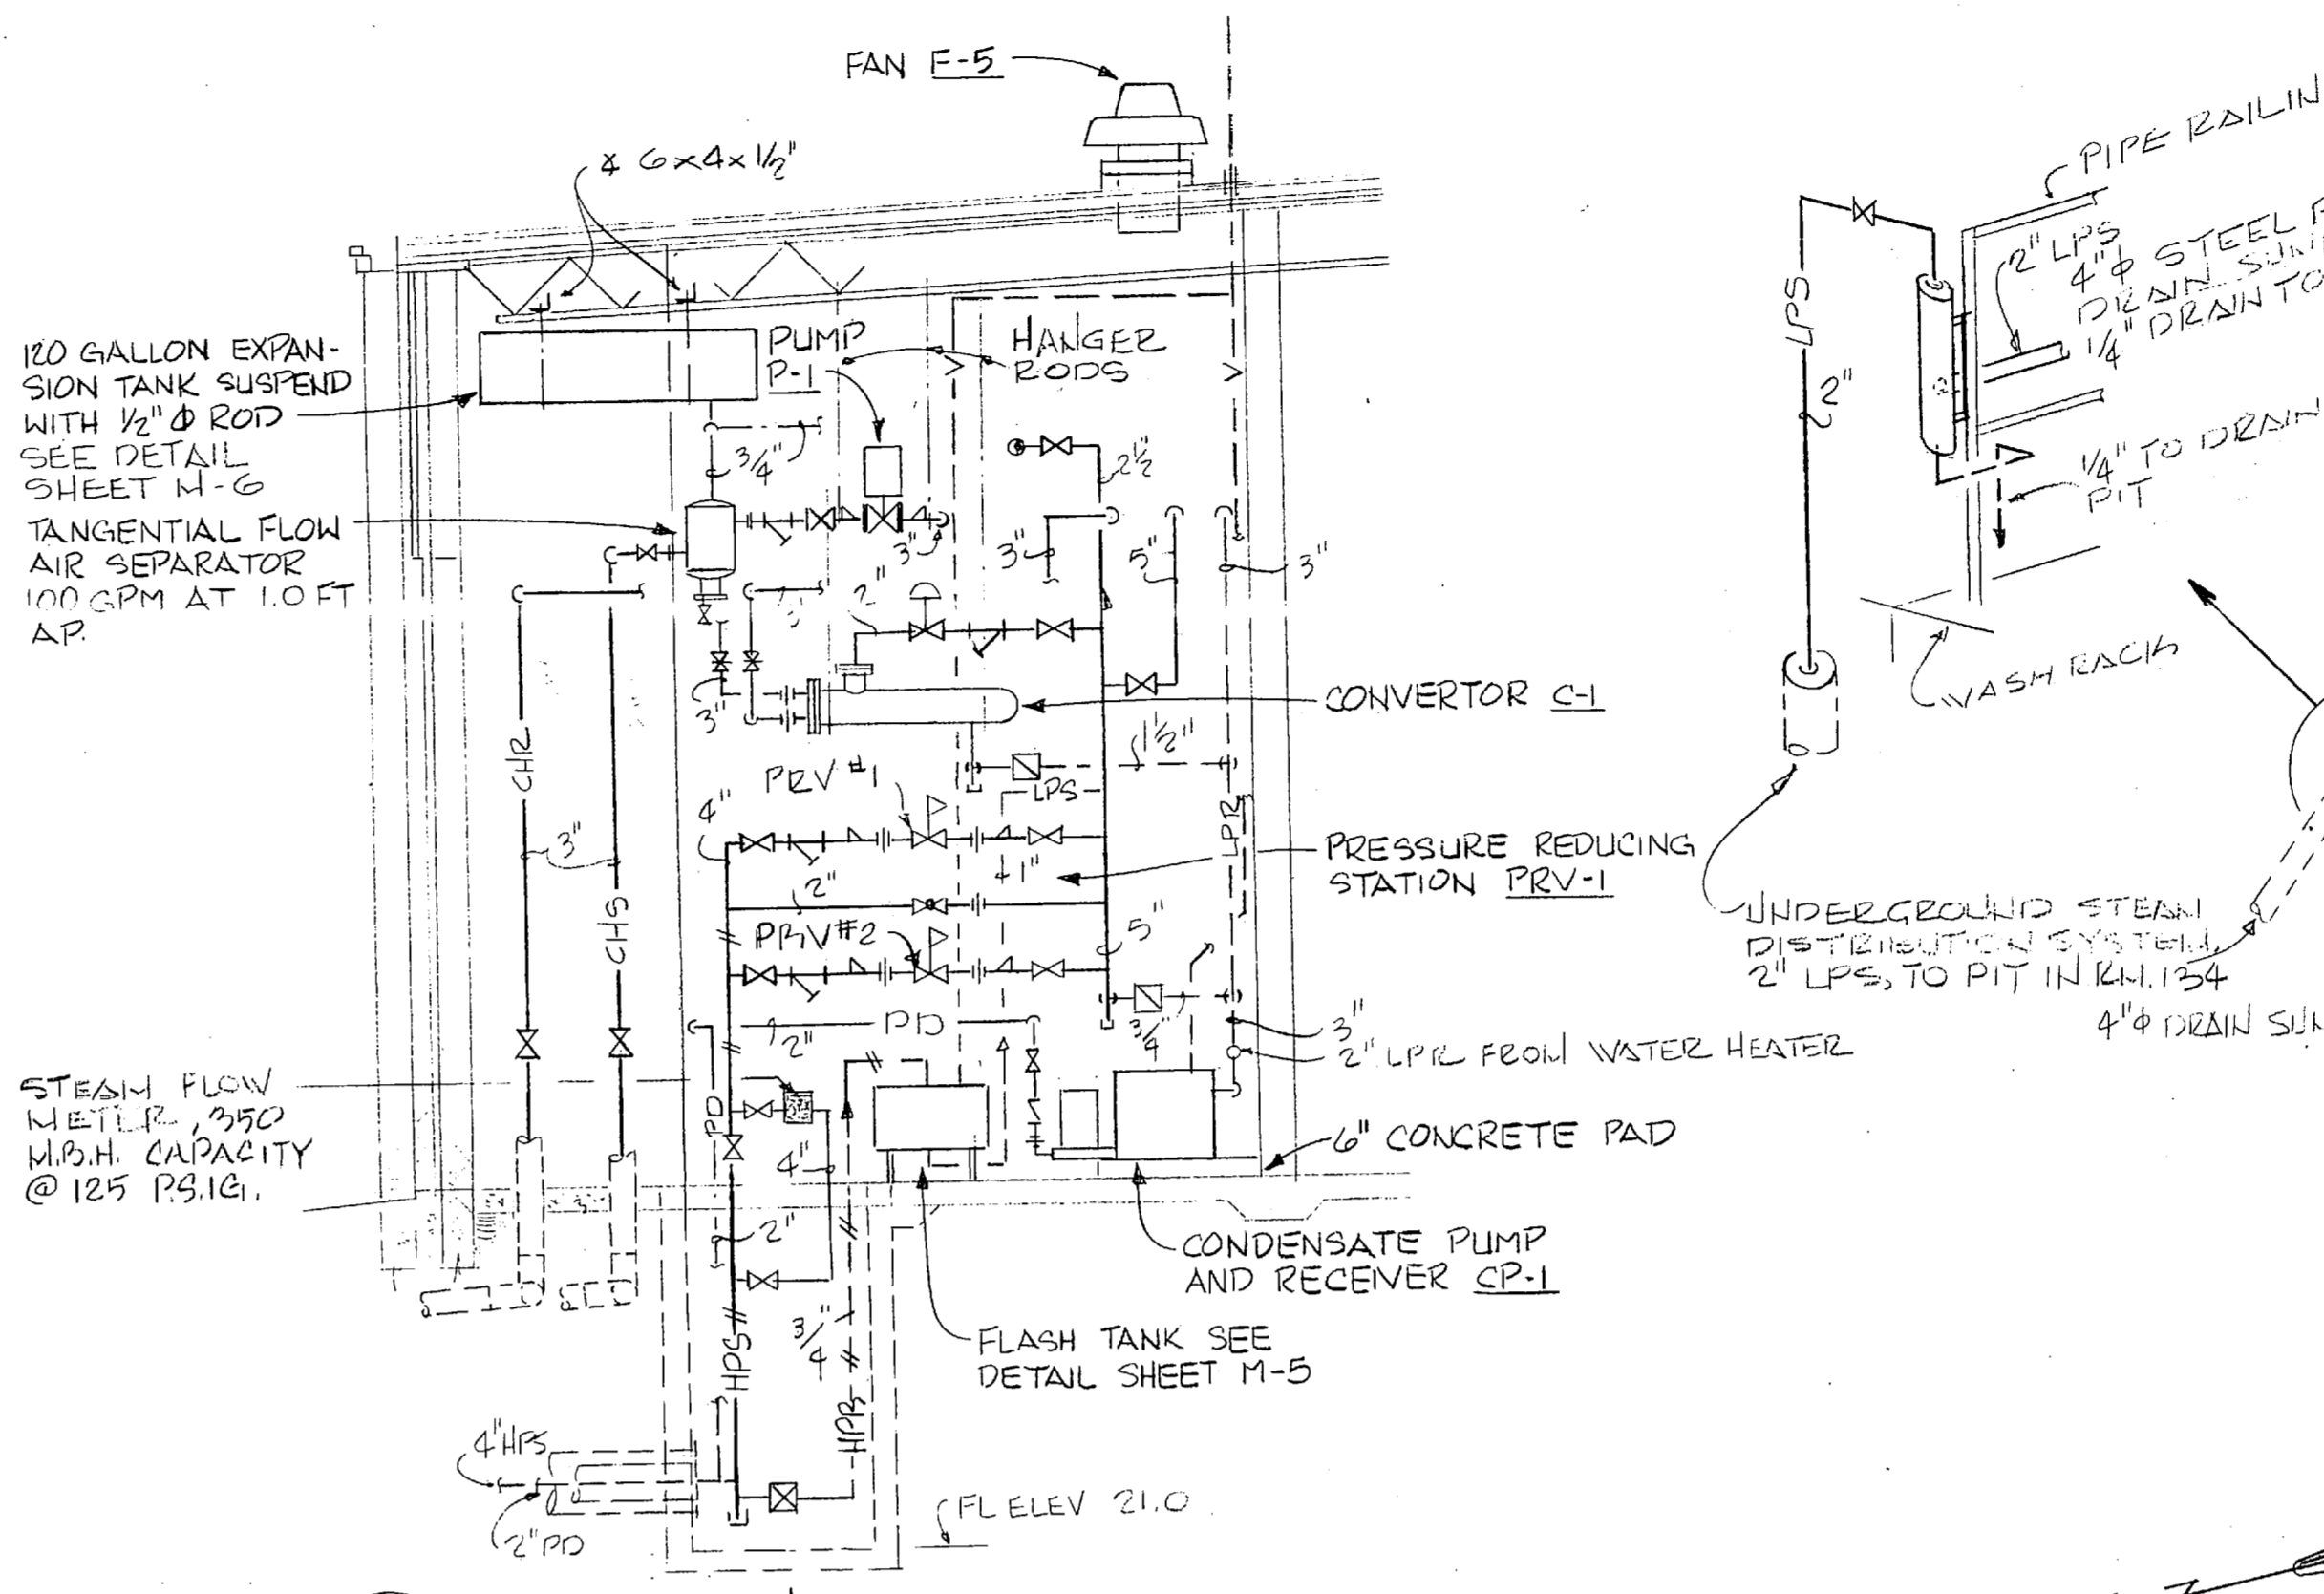 FAN F-5
∡ 6x4x1/2"
120 GALLON EXPAN-
SION TANK SUSPEND
WITH 1/2" Φ ROD
SEE DETAIL
SHEET M-6
TANGENTIAL FLOW
AIR SEPARATOR
100 GPM AT 1.0 FT
ΔP.
PUMP
P-1
HANGER
RODS
3/4"
2 1/2
3"
3"
5"
3"
2"
3"
CONVERTOR C-1
1 1/2"
PRV #1
LPS
4"
LPR
CHR
3"
CHS
1"
PRESSURE REDUCING
STATION PRV-1
2"
PRV #2
5"
3/4"
PD
2"
3"
2" LPR FROM WATER HEATER
STEAM FLOW
METER, 350
M.B.H. CAPACITY
@ 125 P.S.I.G.
PD
4"
6" CONCRETE PAD
2"
CONDENSATE PUMP
AND RECEIVER CP-1
HPS
3/4"
FLASH TANK SEE
DETAIL SHEET M-5
HPR
4" HPS
2" PD
FL ELEV 21.0
PIPE RAILIN
2" LPS
4" Φ STEEL
DRAIN
1/4" DRAIN TO
LPS
2"
1/4" TO DRAIN
PIT
WASH RACK
UNDERGROUND STEAM
DISTRIBUTION SYSTEM,
2" LPS, TO PIT IN RM. 134
4" Φ DRAIN